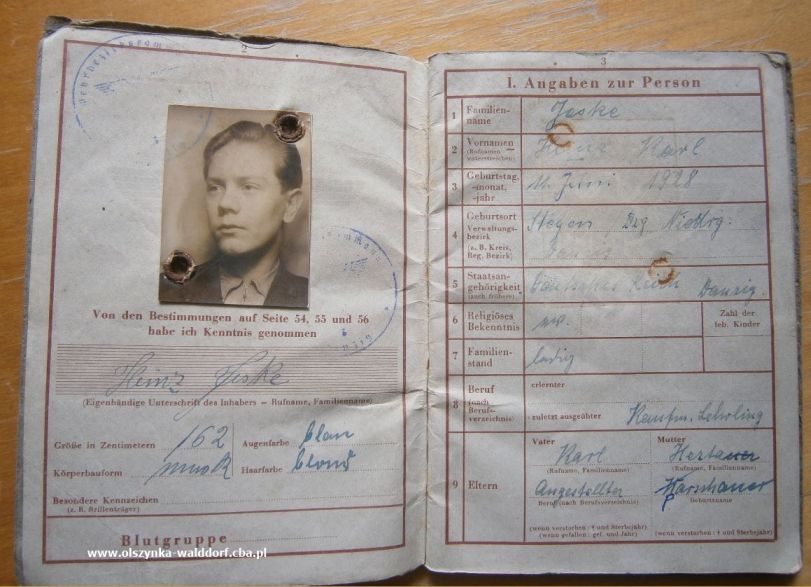 2
Von den Bestimmungen auf Seite 54, 55 und 56
habe ich Kenntnis genommen
Heinz Jeske
(Eigenhändige Unterschrift des Inhabers – Rufname, Familienname)
Größe in Zentimetern 162 Augenfarbe blau
Körperbauform Haarfarbe blond
Besondere Kennzeichen
(z. B. Brillenträger)
Blutgruppe
www.olszynka-walddorf.cba.pl
3
I. Angaben zur Person
1 Familienname Jeske
2 Vornamen (Rufnamen unterstreichen) Heinz Karl
3 Geburtstag, -monat, -jahr 11. Juni 1928
4 Geburtsort Verwaltungsbezirk (z. B. Kreis, Reg. Bezirk) Danzig
5 Staatsangehörigkeit (auch frühere) Deutsches Reich Danzig.
6 Religiöses Bekenntnis Zahl der leb. Kinder
7 Familienstand ledig
8 Beruf (nach Berufsverzeichnis) erlernter
zuletzt ausgeübter Kaufm. Lehrling
Vater Mutter
Karl Herta
(Rufname, Familienname) (Rufname, Familienname)
9 Eltern Angestellter
Beruf (nach Berufsverzeichnis) Geburtsname
(wenn verstorben: † und Sterbejahr) (wenn verstorben: † und Sterbejahr)
(wenn gefallen: gef. und Jahr)